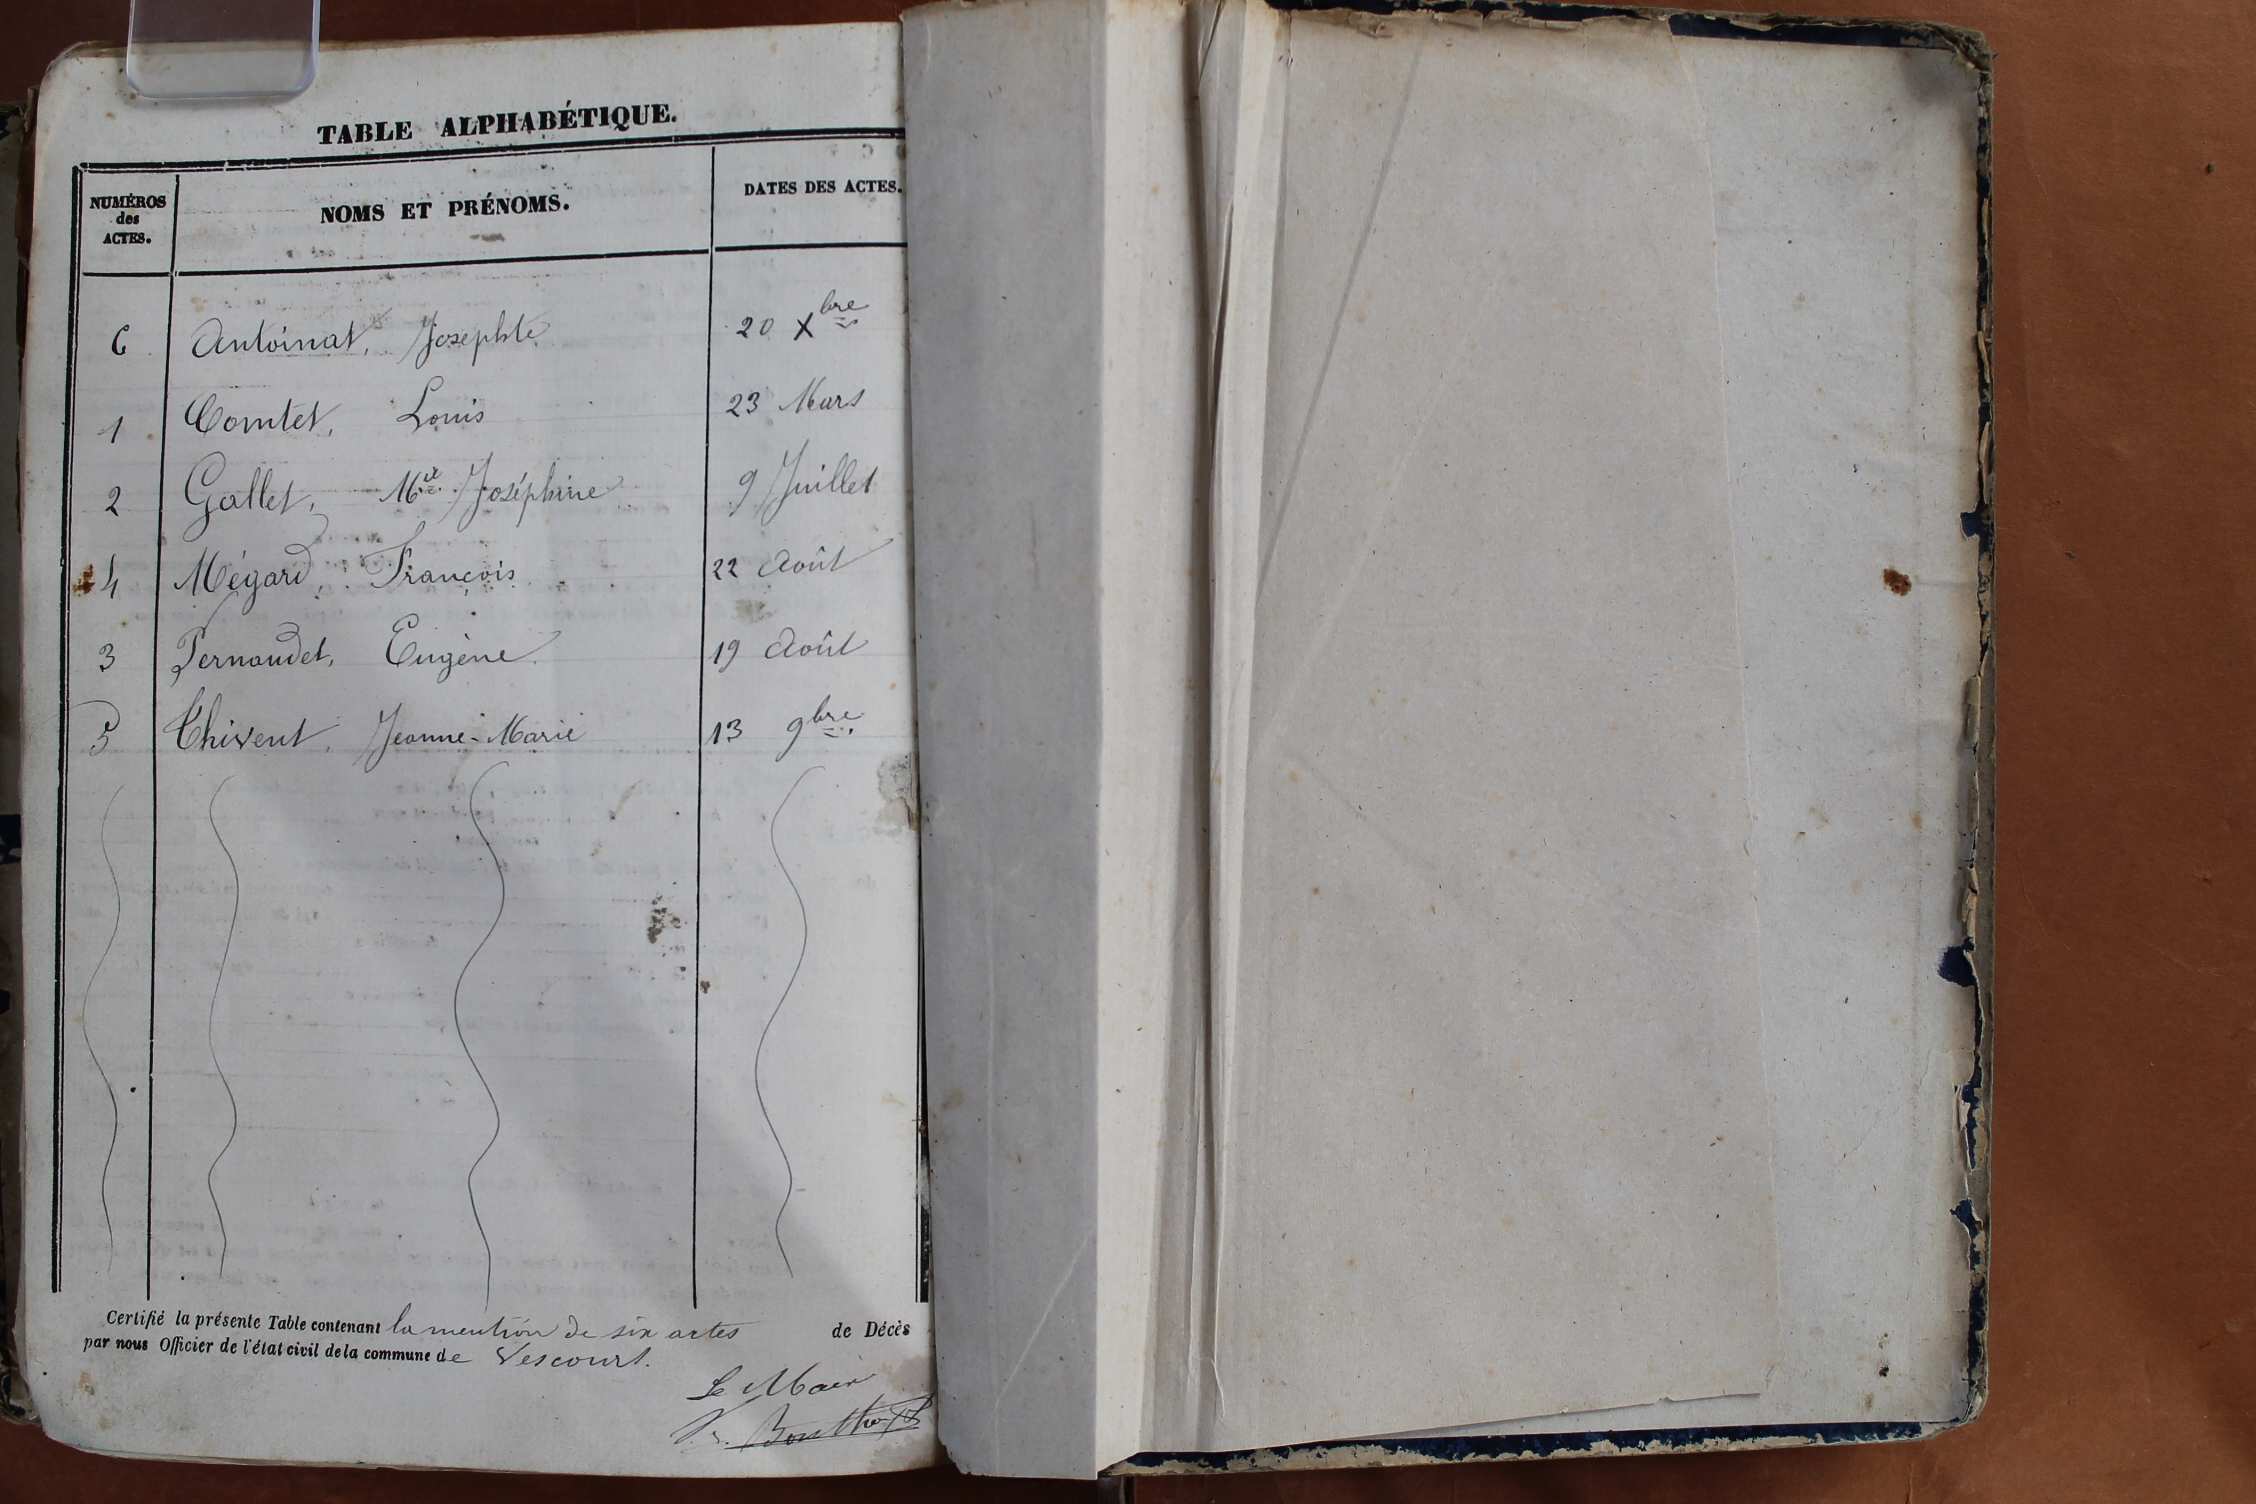 TABLE ALPHABÉTIQUE.
NUMÉROS des ACTES. NOMS ET PRÉNOMS. DATES DES ACTES.
6 Antoinat, Josephte 20 Xbre
1 Comtet, Louis 23 Mars
2 Gallet, Mie Joséphine 9 Juillet
4 Mégard, François 22 Août
3 Pernoudet, Eugène 19 Août
5 Thivent, Jeanne-Marie 13 9bre.
Certifié la présente Table contenant la mention de six actes de Décès
par nous Officier de l'état civil de la commune de Vescours.
Le Maire